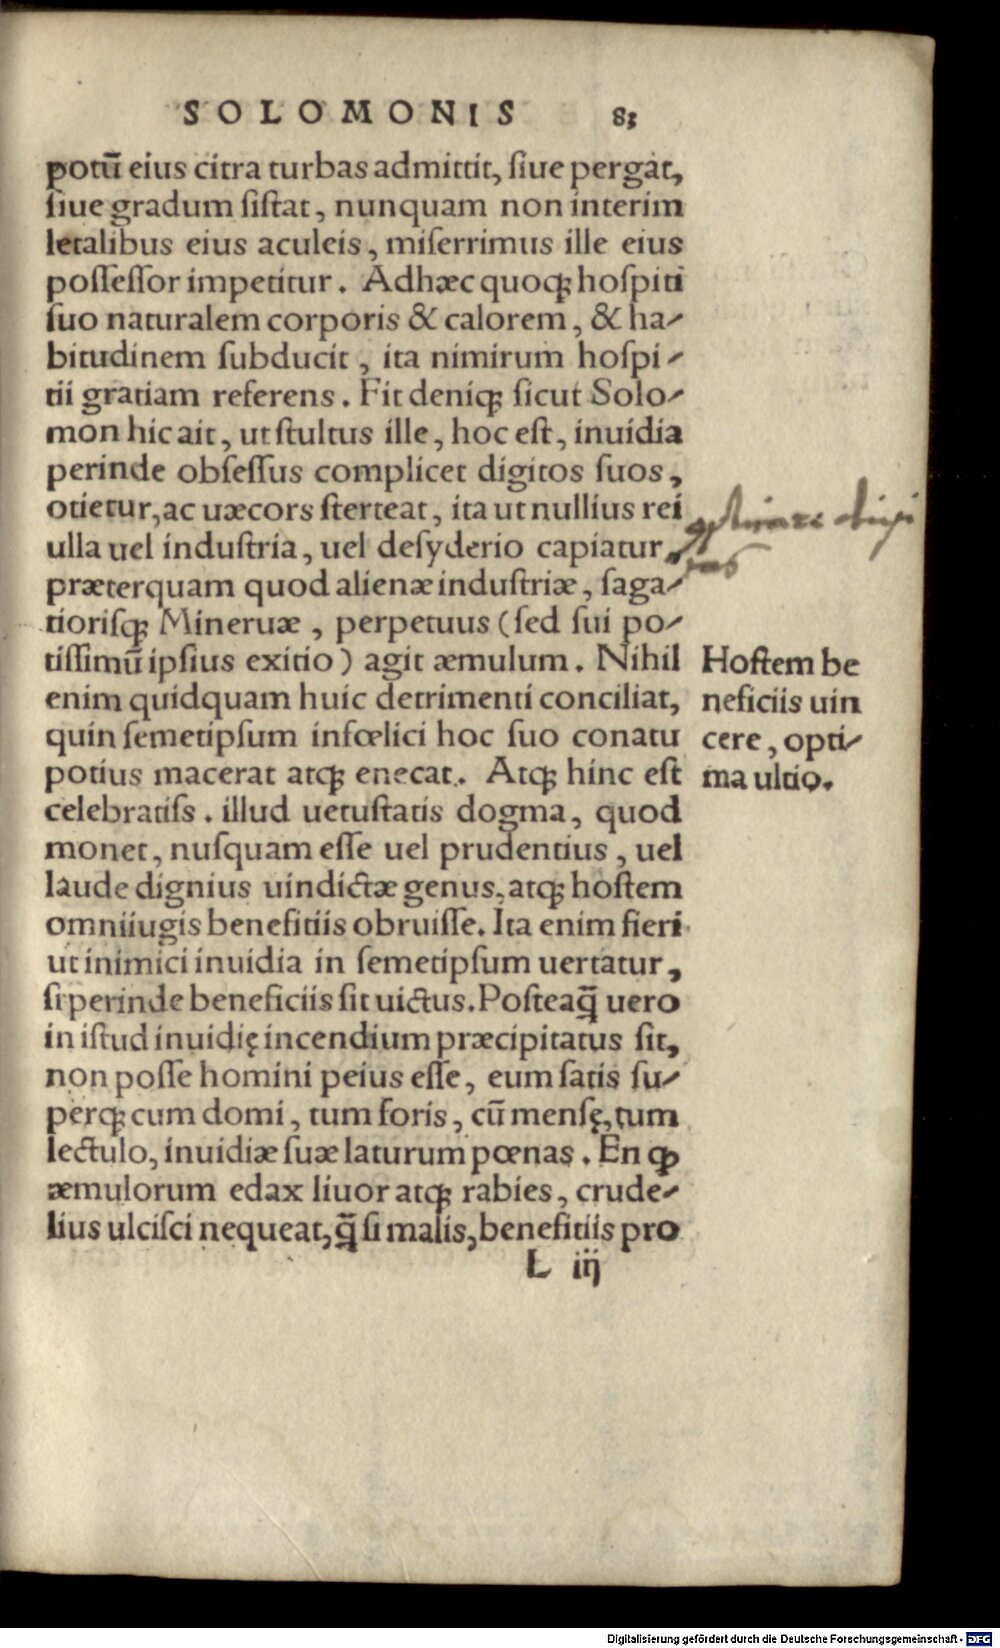 SOLOMONIS 83
potū eius citra turbas admittit, ſiue pergat,
ſiue gradum ſiſtat, nunquam non interim
letalibus eius aculeis, miſerrimus ille eius
poſſeſſor impetitur. Adhæc quoqꝫ hoſpiti
ſuo naturalem corporis & calorem, & ha-
bitudinem ſubducit, ita nimirum hoſpi-
tii gratiam referens. Fit deniqꝫ ſicut Solo-
mon hic ait, ut ſtultus ille, hoc eſt, inuidia
perinde obſeſſus complicet digitos ſuos,
otietur, ac uæcors ſterteat, ita ut nullius rei
ulla uel induſtria, uel deſyderio capiatur,
præterquam quod alienæ induſtriæ, ſaga-
tioriſqꝫ Mineruæ, perpetuus (ſed ſui po-
tiſſimū ipſius exitio) agit æmulum. Nihil
enim quidquam huic detrimenti conciliat,
quin ſemetipſum infœlici hoc ſuo conatu
potius macerat atqꝫ enecat. Atqꝫ hinc eſt
celebratiſs. illud uetuſtatis dogma, quod
monet, nuſquam eſſe uel prudentius, uel
laude dignius uindictæ genus, atqꝫ hoſtem
omniiugis benefitiis obruiſſe. Ita enim fieri
ut inimici inuidia in ſemetipſum uertatur,
ſi perinde beneficiis ſit uictus. Poſteaq̄ uero
in iſtud inuidię incendium præcipitatus ſit,
non poſſe homini peius eſſe, eum ſatis ſu-
perqꝫ cum domi, tum foris, cū menſę, tum
lectulo, inuidiæ ſuæ laturum pœnas. En ꝙ
æmulorum edax liuor atqꝫ rabies, crude-
lius ulciſci nequeat, q̄ ſi malis, benefitiis pro
L iij
Hoſtem be
neficiis uin
cere, opti-
ma ultio.
Digitalisierung gefördert durch die Deutsche Forschungsgemeinschaft - DFG